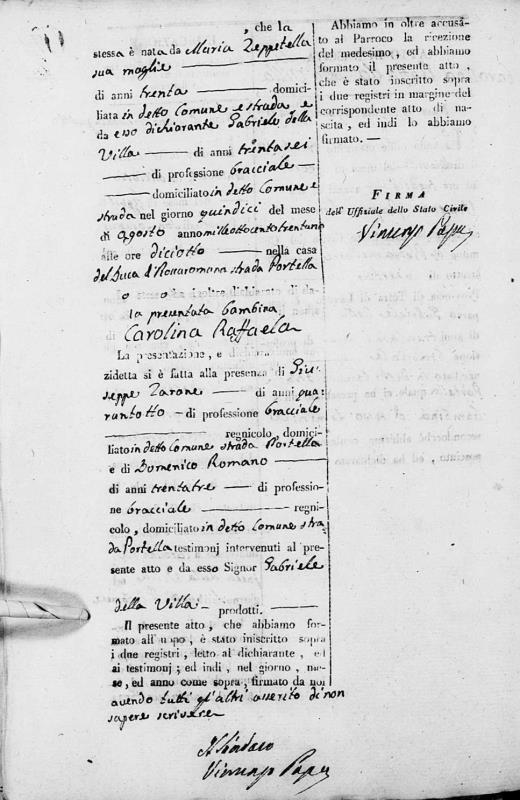 , che la
stessa è nata da Maria Zeppetella
sua moglie
di anni trenta domici-
liata in detto Comune e strada e
da esso dichiarante Gabriele della
Villa di anni trentasei
di professione bracciale
domiciliato in detto Comune e
strada nel giorno quindici del mese
di agosto anno mille ottocento trentuno
alle ore diciotto nella casa
del Duca di Roccaromana strada Portella
la presentata bambina
Carolina Raffaela
La presentazione, e
zidetta si è fatta alla presenza di Giu-
seppe Zarone di anni qua-
rantotto di professione bracciale
regnicolo, domici-
liato in detto Comune strada Portella
e di Domenico Romano
di anni trentatre di professio-
ne bracciale regni-
colo, domiciliato in detto Comune stra-
da Portella testimonj intervenuti al pre-
sente atto e da esso Signor Gabriele
della Villa prodotti.
Il presente atto, che abbiamo for-
mato all'uopo, è stato iniscritto sopra
i due registri, letto al dichiarante, ed
ai testimonj; ed indi, nel giorno, me-
se, ed anno come sopra, firmato da noi
avendo tutti gl'altri asserito di non
sapere scrivere
Il Sindaco
Abbiamo in oltre accusa-
to al Parroco la ricezione
del medesimo, ed abbiamo
formato il presente atto,
che è stato inscritto sopra
i due registri in margine del
corrispondente atto di na-
scita, ed indi lo abbiamo
firmato.—
FIRMA
dell'Uffiziale dello Stato Civile